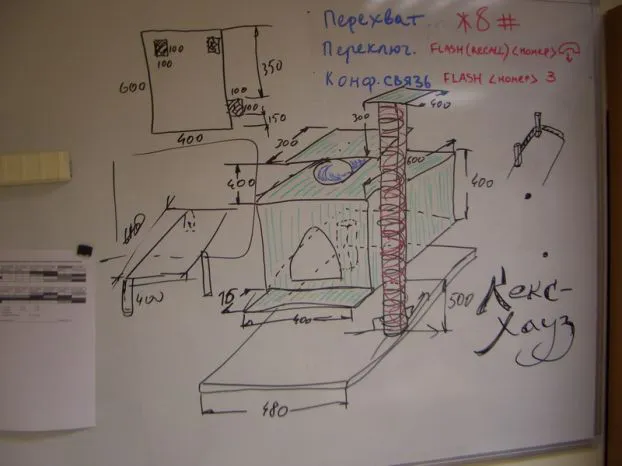 Перехват *8#
Переключ. FLASH(RECALL)<номер>
Конф.связь FLASH <номер> 3
100
100
600
350
100
100
150
400
400
300
300
600
400
400
400
16
400
500
480
Кекс-
Хауз